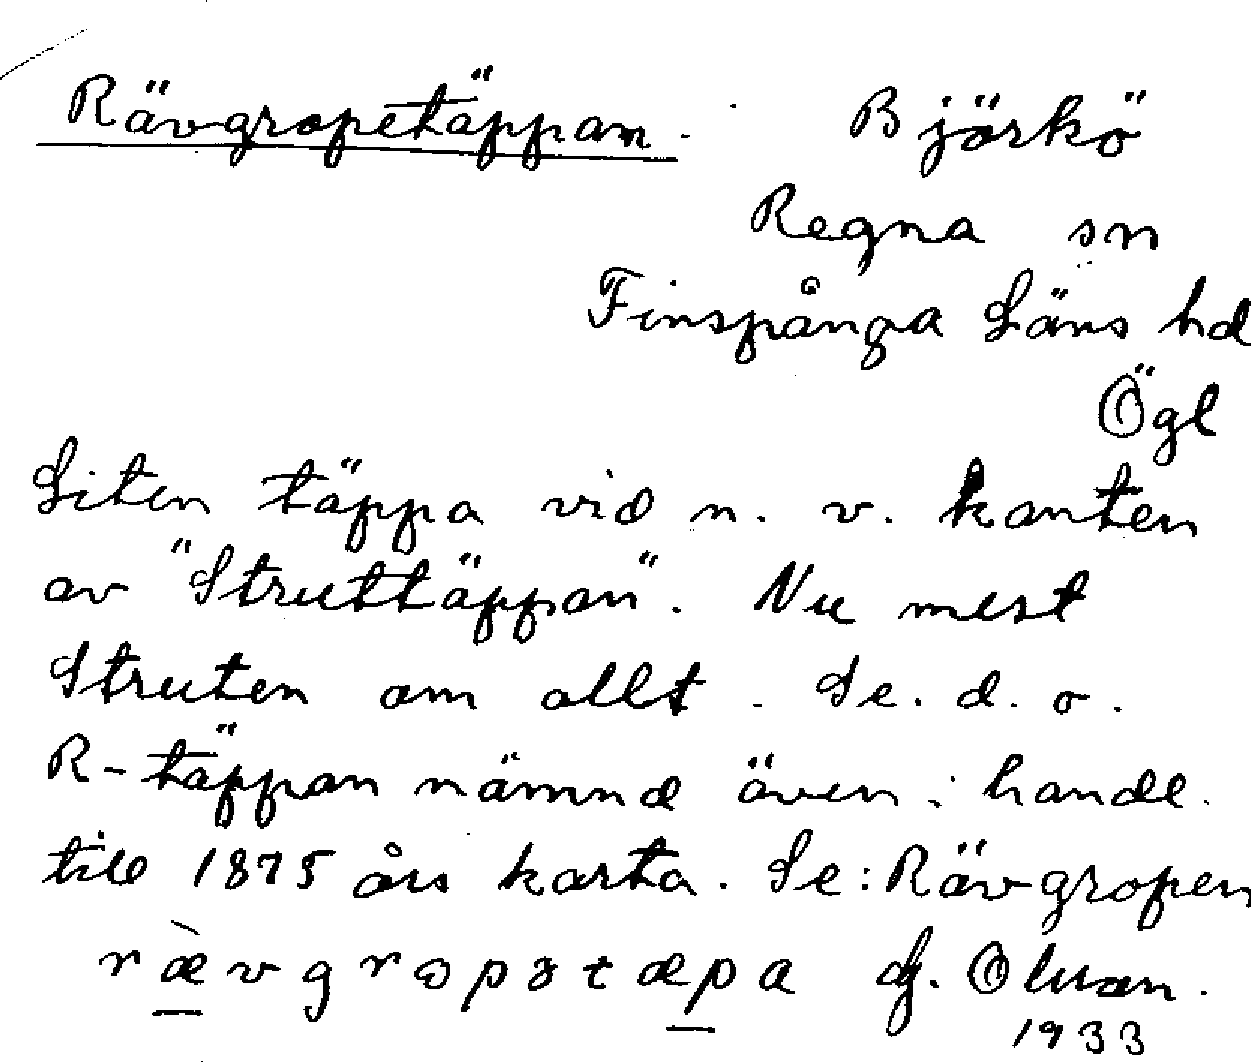 Rävgropetäppan. Björkö
Regna sn
Finspånga Läns hd
Ögl
Liten täppa vid n. v. kanten
av "Struttäppan". Nu mest
Struten om allt. Se. d. o.
R-täppan nämnd även i handl.
till 1875 års karta. Se: Rävgropen
rævgropətæpa
1933